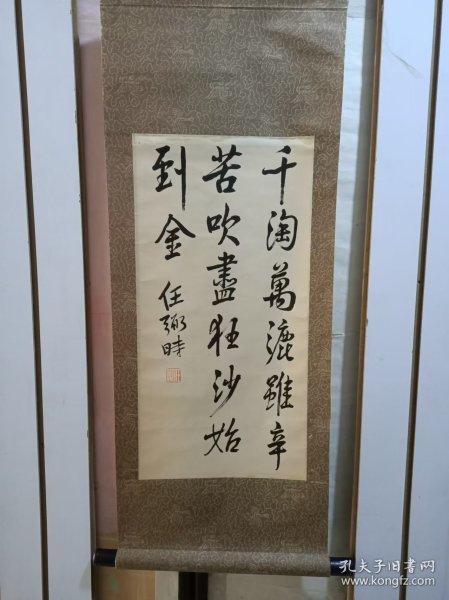 千淘萬漉雖辛
苦吹盡狂沙始
到金
任弼時
孔夫子旧书网
www.kongfz.com